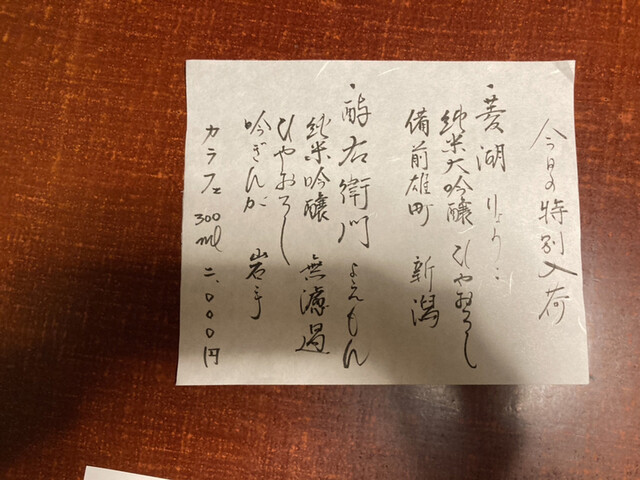 今日の特別入荷
・菱湖 りょうこ
純米大吟醸 ひやおろし
備前雄町 新潟
・酔右衛門 よえもん
純米吟醸 無濾過
ひやおろし
吟ぎんが 岩手
カラフェ 300ml 二,000円